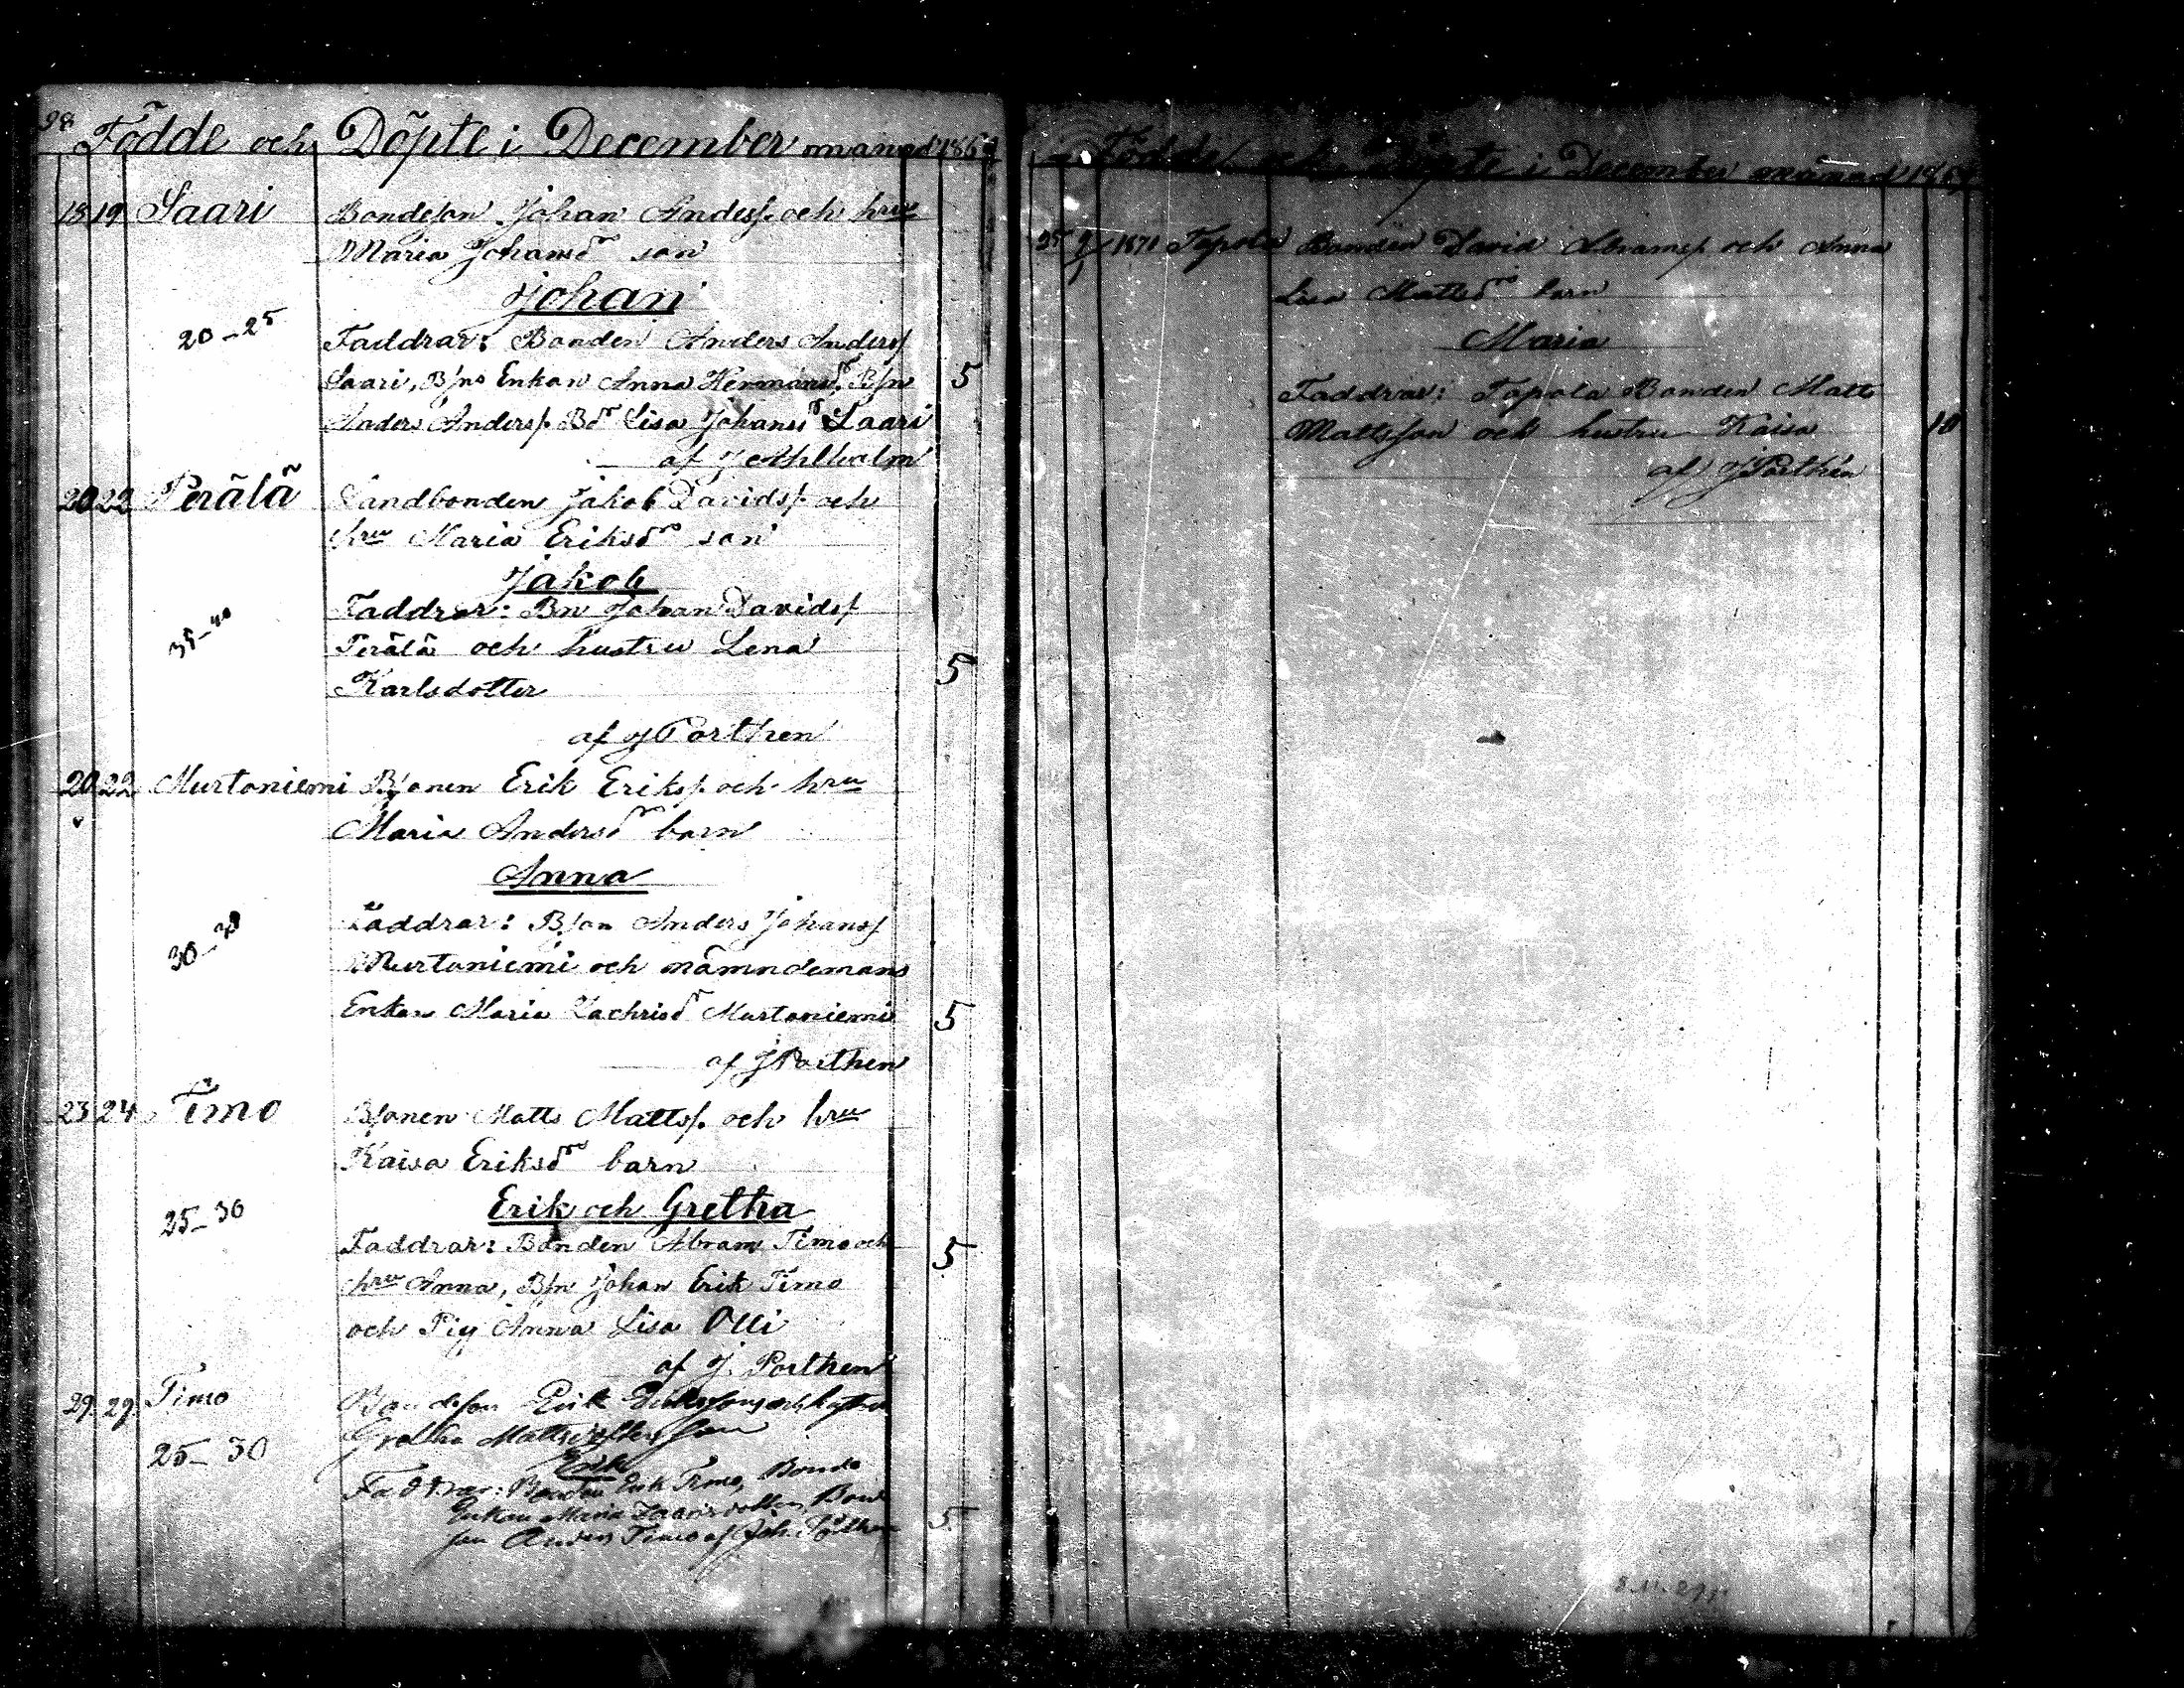 98
Födde och Döpte i December månad 1869
18 19 Saari Bondeson Johan Anderss. och hru
Maria Johansdr son
Johan
20-25
Faddrar: Bonden Anders Anderss
Saari, B/ns Enkan Anna Hermansdr, B/sn 5
Anders Anderss. Bdr Lisa Johansdr Saari
af J Ahlholm
20 22 Perälä Landbonden Jakob Davidss. och
hru Maria Eriksdr son
Jakob
Faddrar: Bn Johan Davidss
35-40
Perälä och hustru Lena
5
Karlsdotter
af J Porthen
20 22 Murtoniemi B/sonen Erik Erikss. och hru
Maria Andersdr barn
Anna
Faddrar: B/son Anders Johanss
30-
Murtoniemi och nämndemans
Enkan Maria Zachrisdr Murtoniemi 5
af J Porthen
23 24 Timo B/sonen Matts Mattss. och hru
Kaisa Eriksdr barn
Erik och Gretha
25-30
Faddrar: Bonden Abram Timo och 5
hru Anna, B/sn Johan Erik Timo
och Pig Anna Lisa Olli
af J. Porthen
29. 29. Timo Bondeson Erik Eriksson och hustru
Gretha Mattsdotters son
25-30
Erik
Faddrar: Bonden Erik Timo, Bonde
Enkan Maria Isaksdotter, Bonde
son Anders Timo af Joh. Pörthen 5

Födde och Döpte i December månad 1869
25 2/1 1870 Tapola Bonden David Abramss. och Anna
Lisa Mattsdr barn
Maria
Faddrar: Tapola Bonden Matts
Mattsson och hustru Kaisa 10
af J Porthén